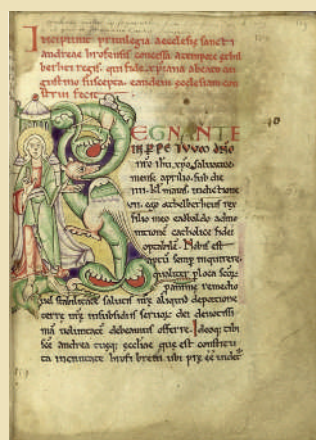 Incipiunt priuilegia aecclesię sancti
andreae hrofensis concessa a tempore ethil
berhti regis, qui fide xp̄iana a beato au
gustino suscepta, eandem ęclesiam con
strui fecit.
REGNANTE
IN PERPETUUM DN̄O
nr̄o ihu xp̄o saluatore
mense aprilio, sub die
iiii. kl̄ maias, indictione
vii. ego aethelberhtus rex
filio meo eadbaldo admo
nitionē catholice fidei
optabilē. Nobis est
aptū semp̄ inquirere
qualit̄ p̄ loca sc̄orū
pro anime remedio
uel stabilitate salutis nr̄e aliquid de portione
terre nr̄e in subsidiis seruorū dei deuotissi
ma uoluntate debeamus offerre. Ideoq; tibi
sc̄e andrea tueq; ecclesie que est constitu
ta in ciuitate hrofi breui ubi